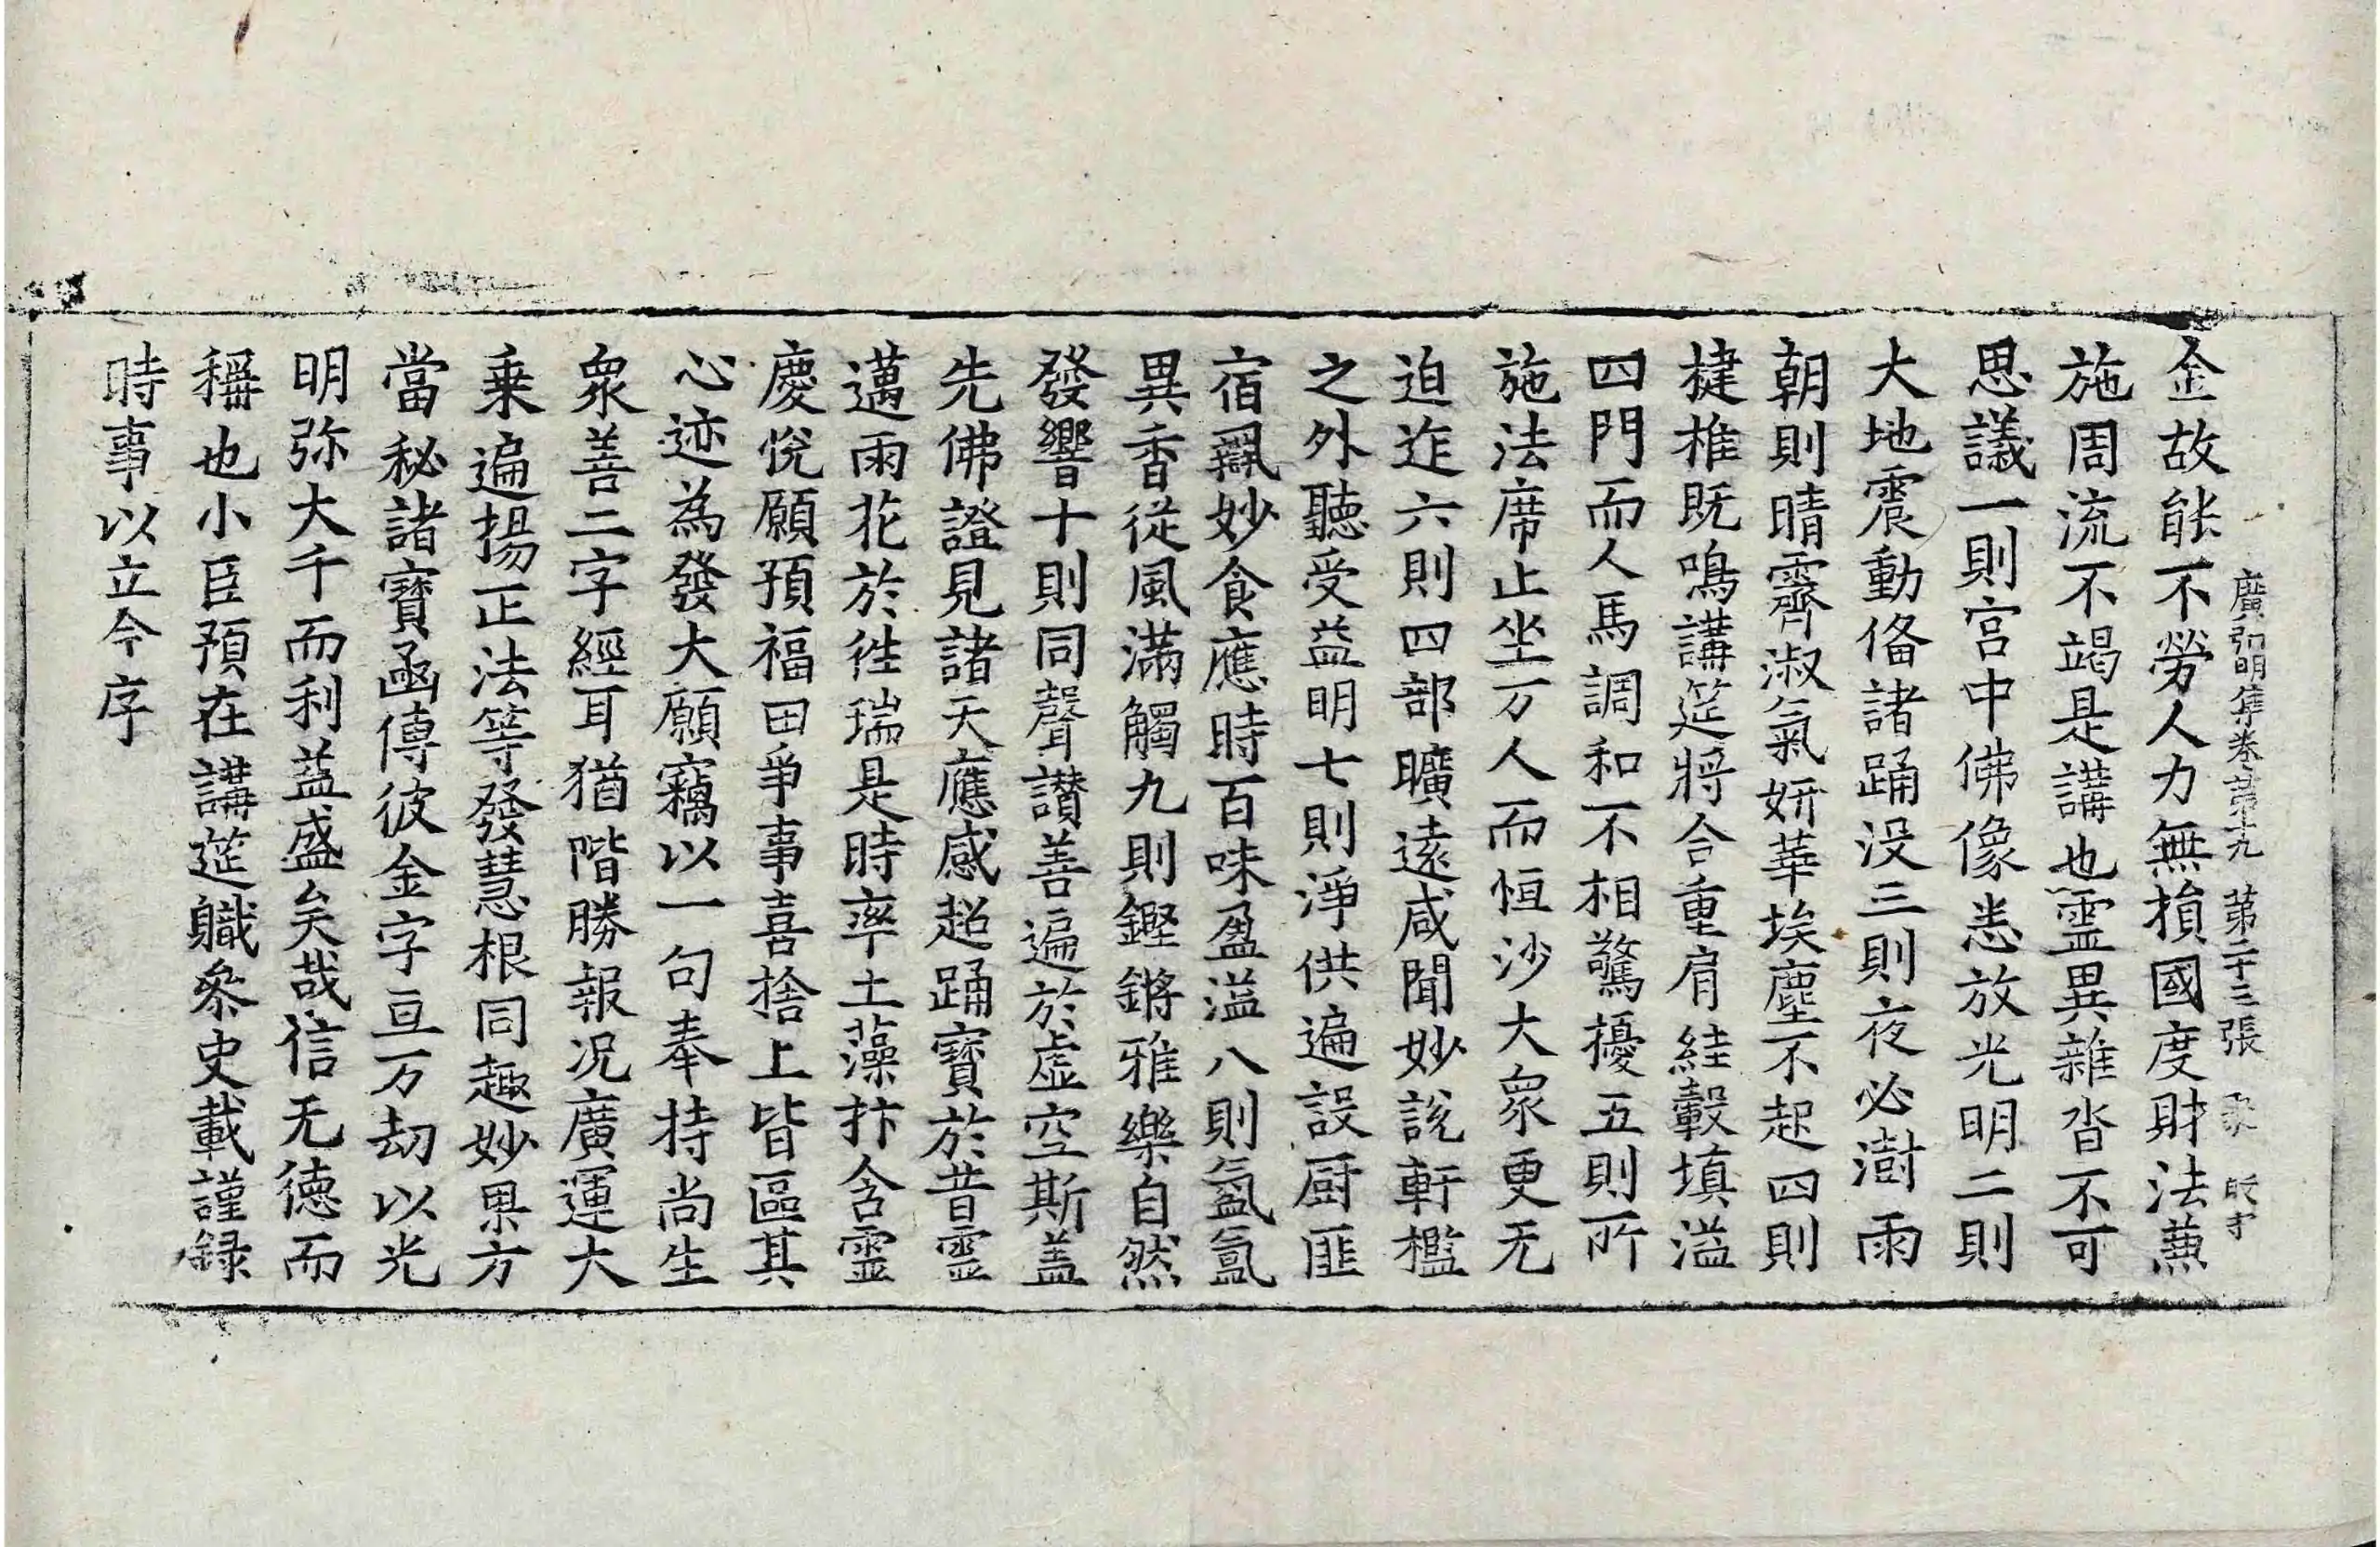 廣弘明集卷第十九 第二十三張 㒸
金故能不勞人力無損國度財法蕪
施周流不竭是講也霊異雜沓不可
思議一則宮中佛像悉放光明二則
大地震動俻諸踊没三則夜必澍雨
朝則晴霽淑氣妍華埃塵不起四則
揵椎既鳴講筵將合重肩絓轂填溢
四門而人馬調和不相驚擾五則所
施法席止坐万人而恒沙大衆更无
迫迮六則四部曠遠咸聞妙說軒檻
之外聽受益明七則淨供遍設厨匪
宿羂妙食應時百味盈溢八則氳氤
異香從風滿觸九則鏗鏘雅樂自然
發響十則同聲讃善遍於虛空斯盖
先佛證見諸天應感超踊寳於昔霊
邁雨花於徃瑞是時率土藻抃含霊
慶悅願預福田爭事喜捨上皆區其
心迹為發大願竊以一句奉持尚生
衆善二字經耳猶階勝報况廣運大
乗遍揚正法等發慧根同趣妙果方
當秘諸寶函傳彼金字亘万劫以光
明弥大千而利益盛矣哉信无德而
稱也小臣預在講筵職叅史載謹録
時事以立今序